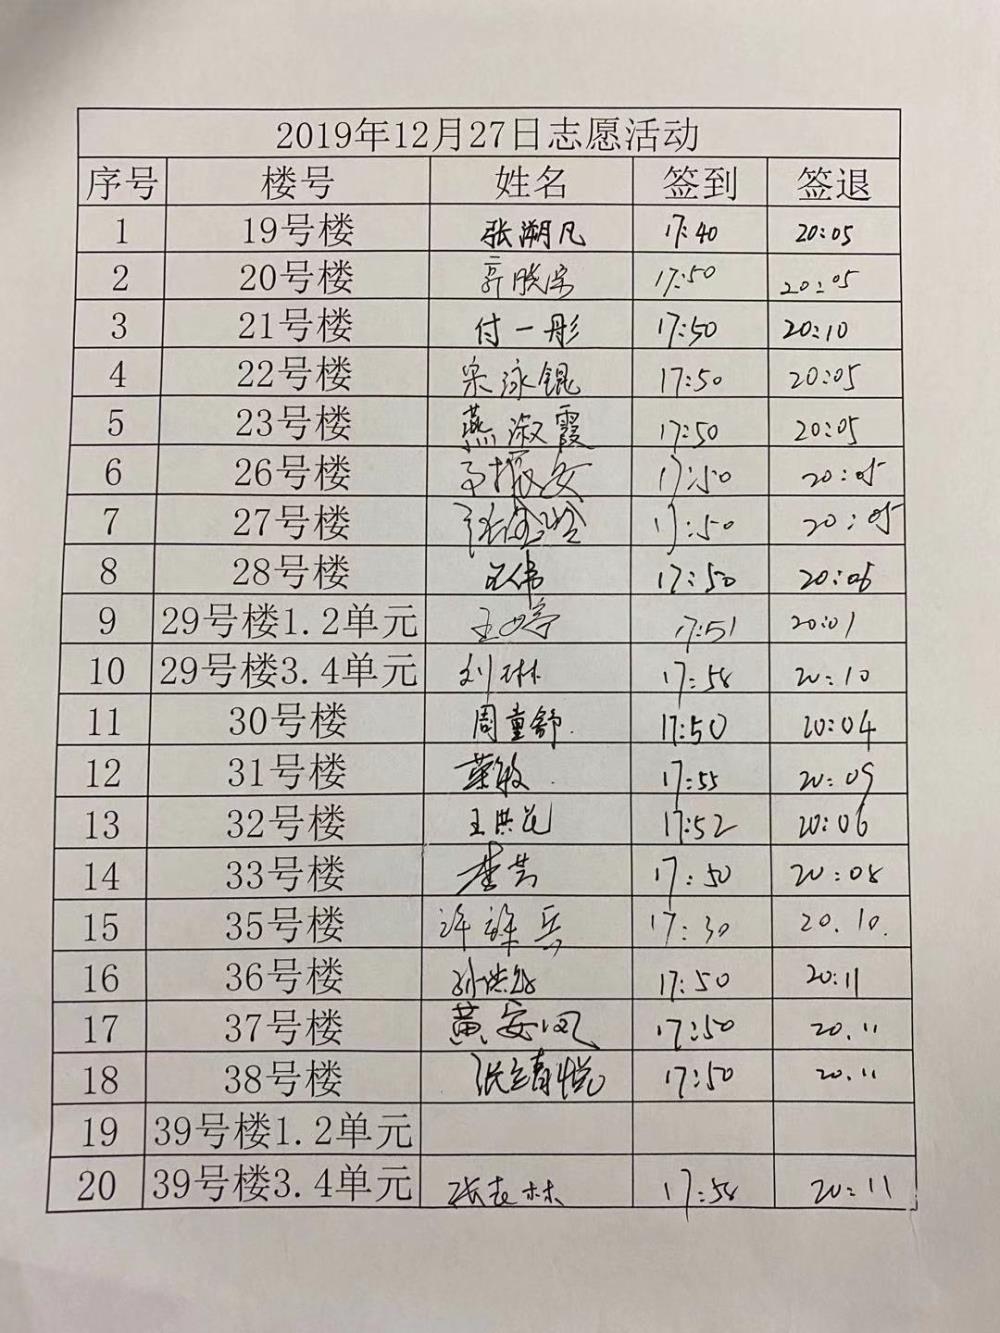 2019年12月27日志愿活动
序号 楼号 姓名 签到 签退
1 19号楼 张溯凡 17:40 20:05
2 20号楼 17:50 20:05
3 21号楼 付一彤 17:50 20:10
4 22号楼 宋泳锟 17:50 20:05
5 23号楼 燕淑霞 17:50 20:05
6 26号楼 17:50 20:05
7 27号楼 17:50 20:05
8 28号楼 王伟 17:50 20:06
9 29号楼1.2单元 王婷 17:51 20:01
10 29号楼3.4单元 刘琳 17:58 20:10
11 30号楼 周童舒 17:50 20:04
12 31号楼 17:55 20:09
13 32号楼 王洪花 17:52 20:06
14 33号楼 17:50 20:08
15 35号楼 17:30 20.10.
16 36号楼 17:50 20:11
17 37号楼 黄安凤 17:50 20.11
18 38号楼 张靖悦 17:50 20.11
19 39号楼1.2单元
20 39号楼3.4单元 17:58 20:11